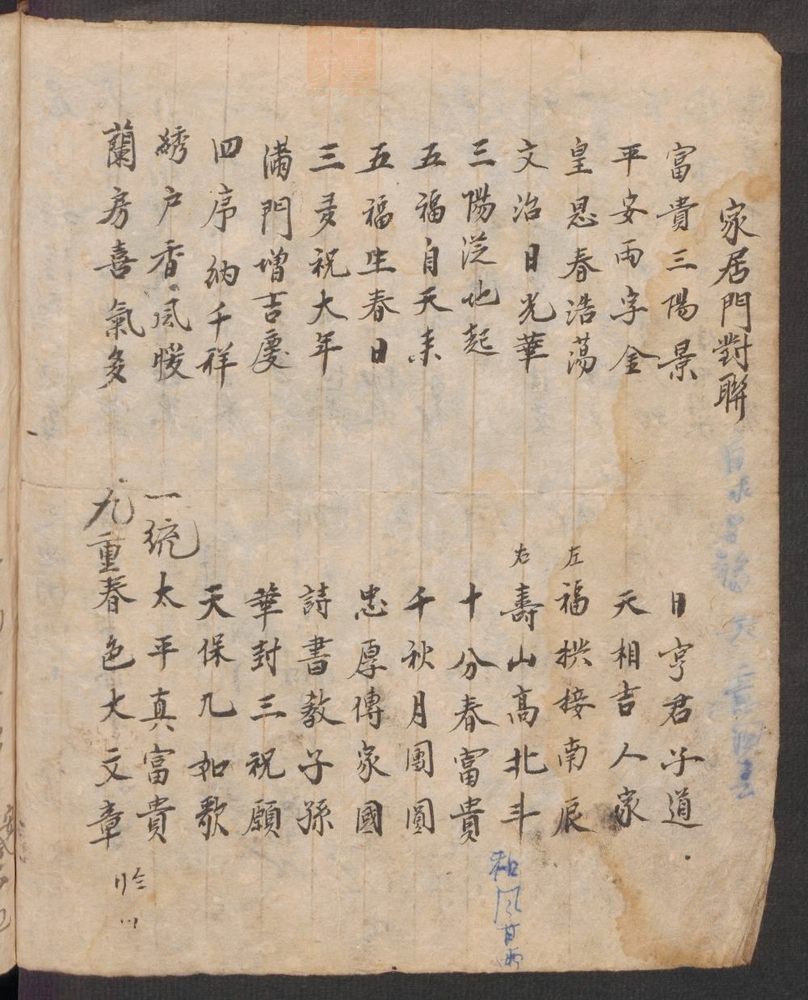 家居門對聯
富貴三陽景
平安兩字金
皇恩春浩蕩
文治日光華
三陽從地起
五福自天來
五福生春日
三多祝大年
滿門增吉慶
四序納千祥
綉户香風暖
蘭房喜氣多
日亨君子道
天相吉人家
左 福拱接南辰
右 壽山高北斗
十分春富貴
千秋月團圓
忠厚傳家國
詩書教子孫
華封三祝願
天保九如歌
一統太平真富貴
九重春色大文章
和風甘雨